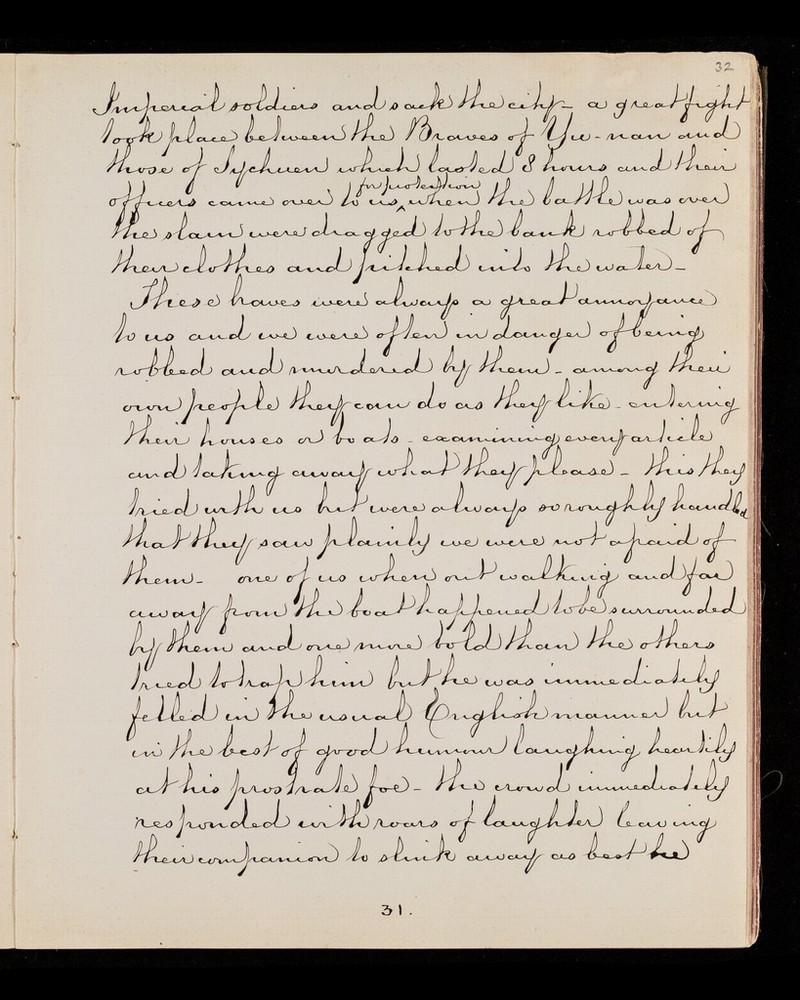 32
Imperial soldiers and sack the city – a great fight
took place between the Braves of Yu-nan and
those of Sychuen which lasted 8 hours and their
for protection
officers came over to us ‸ when the battle was over
the slain were dragged to the bank robbed of
their clothes and pitched into the water –
These braves were always a great annoyance
to us and we were often in danger of being
robbed and murdered by them – among their
own people they can do as they like – entering
their houses or boats – examining every article
and taking away what they please – this they
tried with us but were always so roughly handled
that they saw plainly we were not afraid of
them – one of us when out walking and far
away from the boat happened to be surrounded
by them and one more bold than the others
tried to trap him but he was immediately
felled in the usual English manner but
in the best of good humour laughing heartily
at his prostrate foe – the crowd immediately
responded with roars of laughter leaving
their companion to slink away as best he
31.